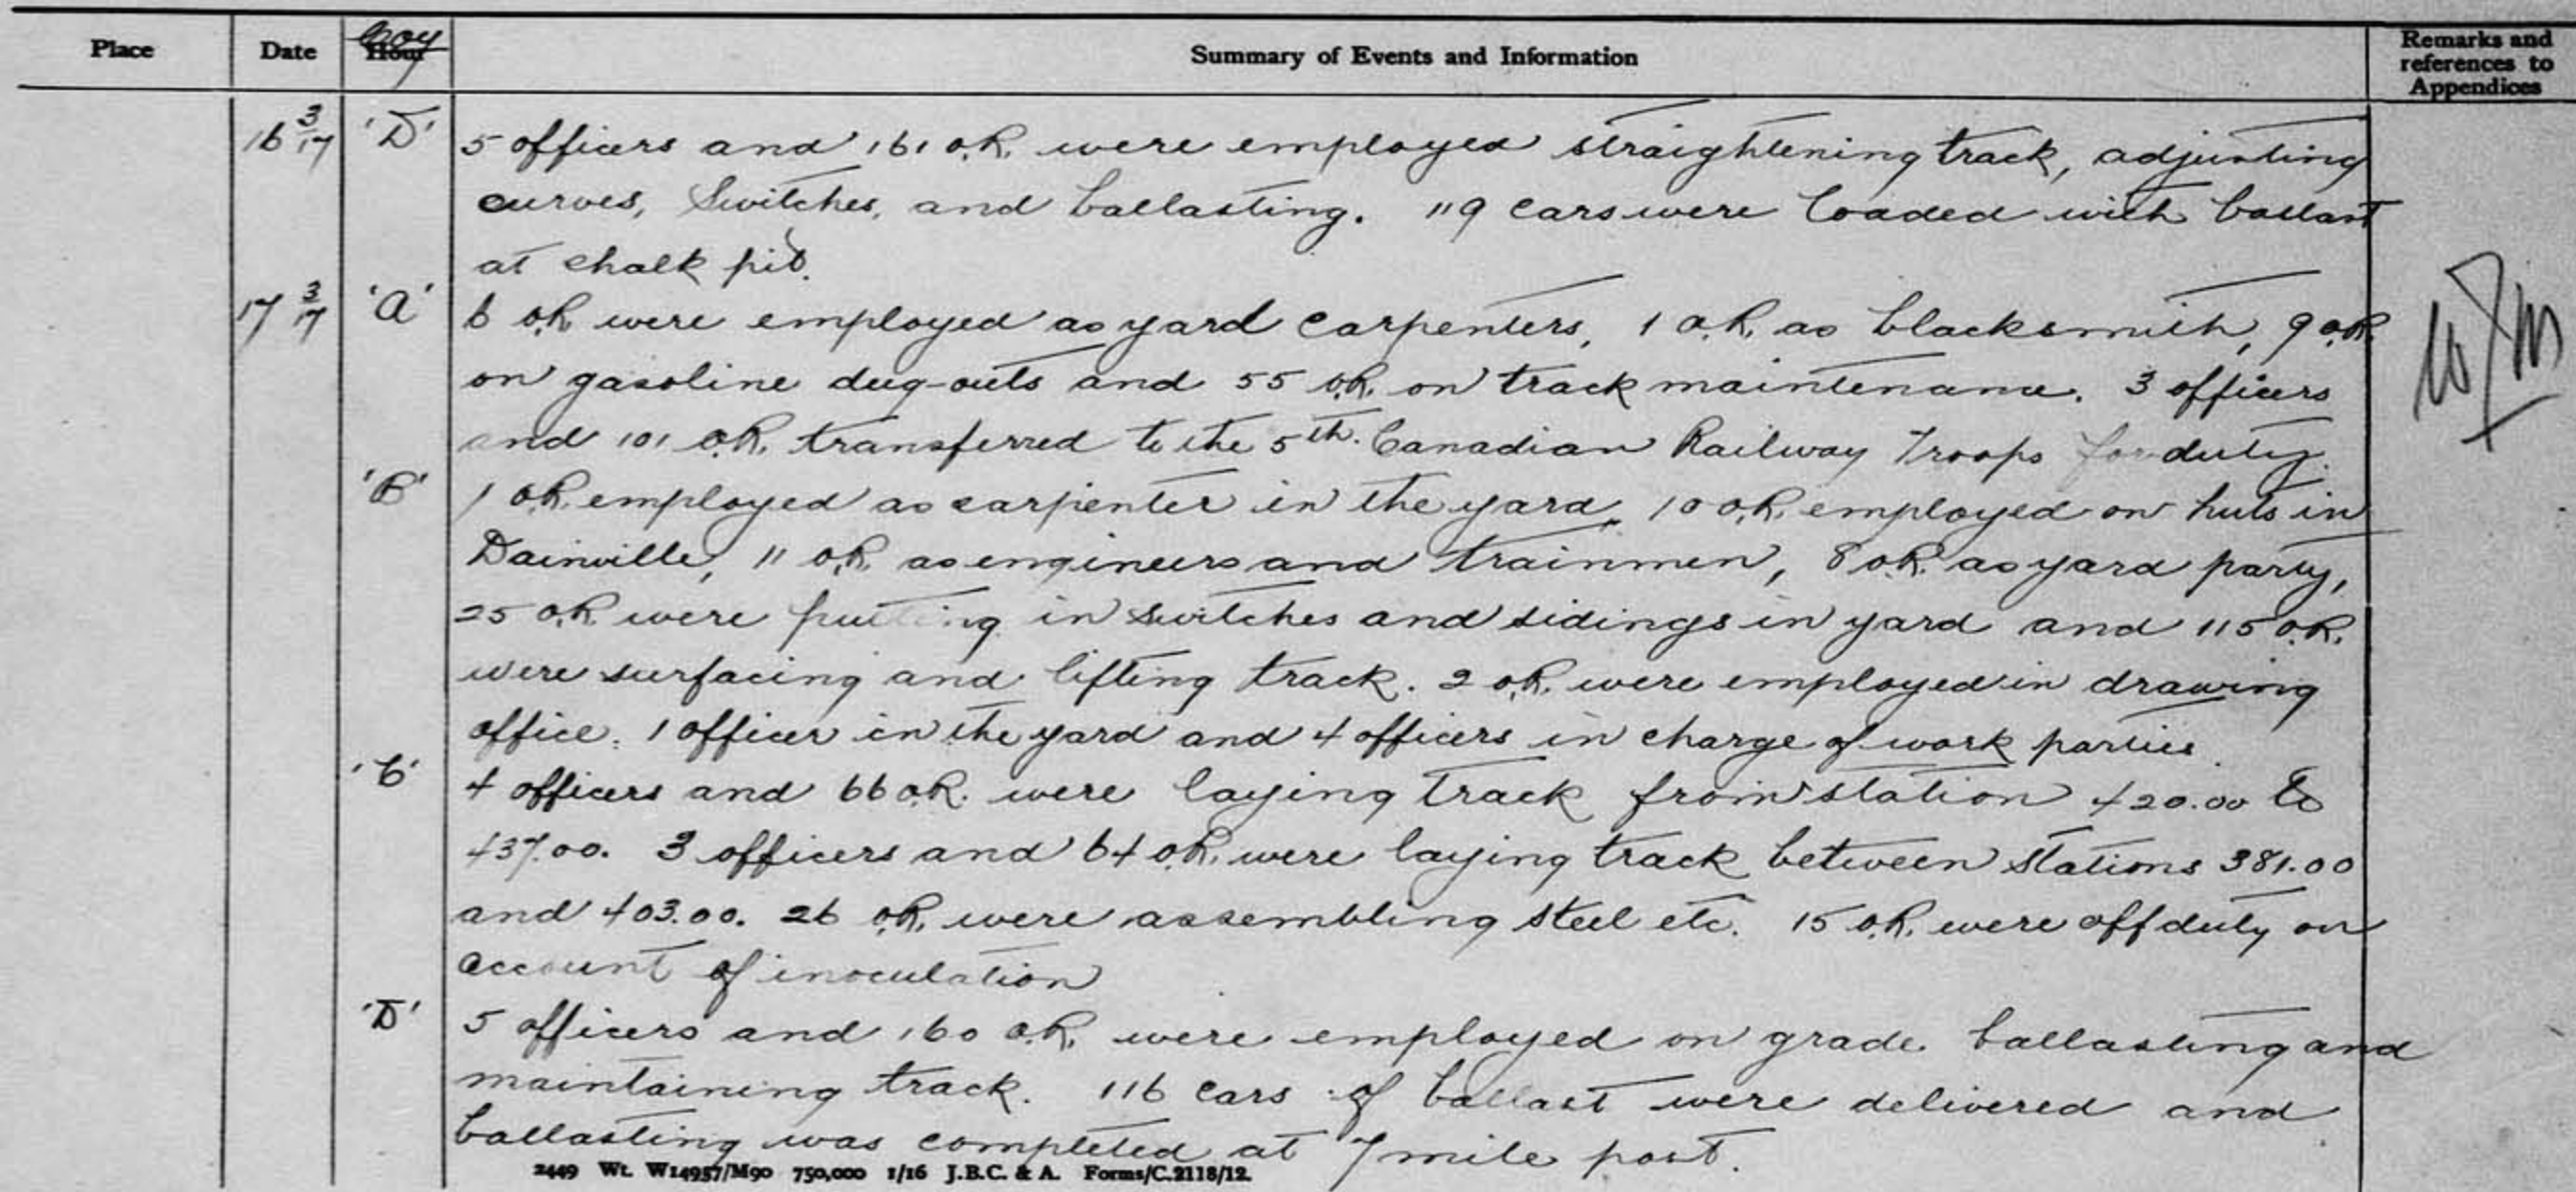 Place Date Hour Coy Summary of Events and Information Remarks and references to Appendices
16 3/17 'D' 5 officers and 161 O.R. were employed straightening track, adjusting
curves, switches, and ballasting. 119 cars were loaded with ballast
at chalk pit.
17 3/17 'A' 6 O.R. were employed as yard carpenters, 1 O.R. as blacksmith, 9 O.R.
on gasoline dug-outs and 55 O.R. on track maintenance. 3 officers
and 101 O.R. transferred to the 5th. Canadian Railway Troops for duty.
'B' 1 O.R. employed as carpenter in the yard, 10 O.R. employed on huts in
Dainville, 11 O.R. as engineers and trainmen, 8 O.R. as yard party,
25 O.R. were putting in switches and sidings in yard and 115 O.R.
were surfacing and lifting track. 2 O.R. were employed in drawing
office. 1 officer in the yard and 4 officers in charge of work parties.
'C' 4 officers and 66 O.R. were laying track from station 420.00 to
437.00. 3 officers and 64 O.R. were laying track between stations 381.00
and 403.00. 26 O.R. were assembling steel etc. 15 O.R. were off duty on
account of inoculation
'D' 5 officers and 160 O.R. were employed on grade ballasting and
maintaining track. 116 cars of ballast were delivered and
ballasting was completed at 7 mile post.
2449 Wt. W14957/M90 750,000 1/16 J.B.C. & A. Forms/C.2118/12.